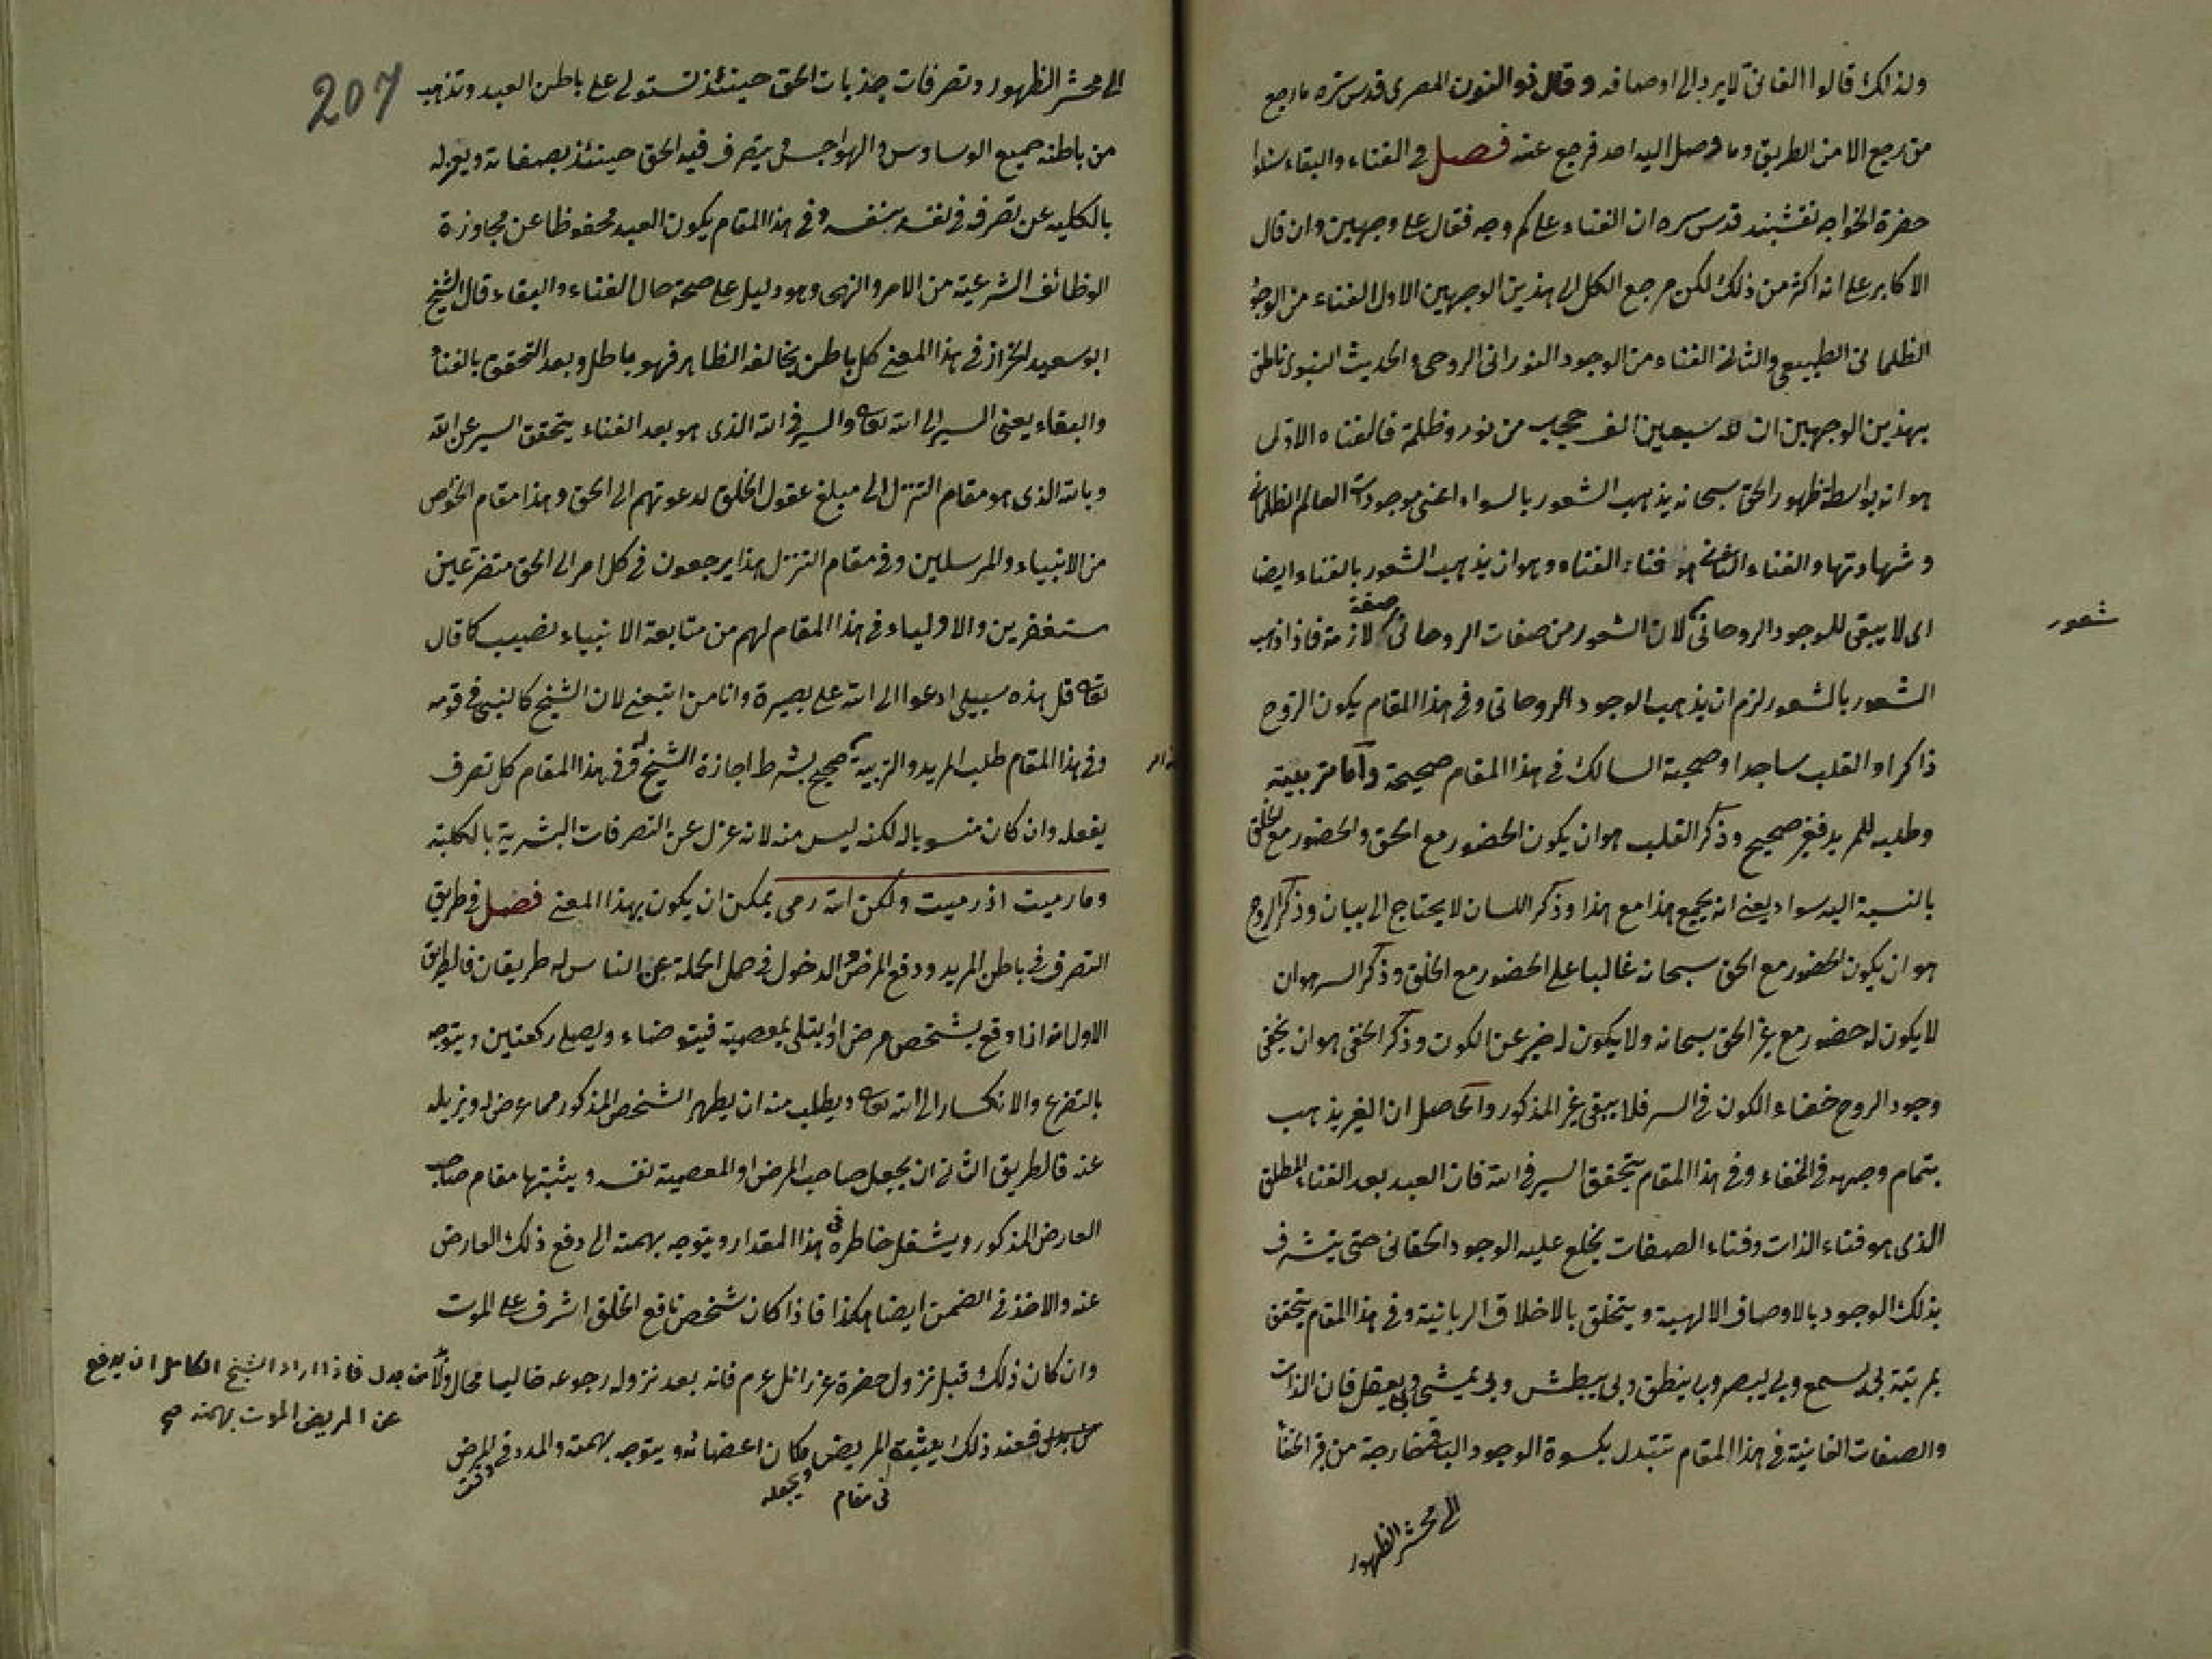 ولذلك قالوا الفانى لا يرد الى اوصافه وقال ذو النون المصرى قدس سره ما رجع
من رجع الا من الطريق وما وصل اليه احد فرجع عنه فصل فى الفناء والبقاء سئلوا
حضرة الخواجه نقشبند قدس سره ان الفناء على كم وجه فقال على وجهين وان قال
الاكابر على انه اكثر من ذلك لكن مرجع الكل الى هذين الوجهين الاول الفناء من الوجود
الظلمانى الطبيعى والثانى الفناء من الوجود النورانى الروحى والحديث النبوى ناطق
بهذين الوجهين ان لله سبعين الف حجاب من نور وظلمة فالفناء الاول
هو انه بواسطة ظهور الحق سبحانه يذهب الشعور بالسواء اعنى موجودات العالم الظلمانى
وشهادتها والفناء الثانى هو فناء الفناء وهو ان يذهب الشعور بالفناء ايضا
شعور
اى لا يبقى للوجود الروحانى لان الشعور من صفات الروحانى صفة لازمة فاذا ذهب
الشعور بالشعور لزم ان يذهب الوجود الروحانى وفى هذا المقام يكون الروح
ذاكرا والقلب ساجدا وصحبة السالك فى هذا المقام صحيحة واما تربيته
وطلبه للمريد فغير صحيح وذكر القلب هو ان يكون الحضور مع الحق والحضور مع الخلق
بالنسبة اليه سواء يعنى انه يجمع هذا مع هذا وذكر اللسان لا يحتاج الى بيان وذكر الروح
هو ان يكون الحضور مع الحق سبحانه غالبا على الحضور مع الخلق وذكر السر هو ان
لا يكون له حضور مع غير الحق سبحانه ولا يكون له خبر عن الكون وذكر الخفى هو ان يخفى
وجود الروح خفاء الكون فى السر فلا يبقى غير المذكور والحاصل ان الغير يذهب
بتمام وجهه فى الخفاء وفى هذا المقام يتحقق السير فى الله فان العبد بعد الفناء المطلق
الذى هو فناء الذات وفناء الصفات يخلع عليه الوجود الحقانى حتى يتشرف
بذلك الوجود بالاوصاف الالهية ويتخلق بالاخلاق الربانية وفى هذا المقام يتحقق
بمرتبة بى يسمع وبى يبصر وبى ينطق وبى يبطش وبى يمشى وبى يعقل فان الذات
والصفات الفانية فى هذا المقام تتبدل بكسوة الوجود الباقى خارجة من قبر الخفاء
الى محشر الظهور
207
الى محشر الظهور وتصرفات جذبات الحق حينئذ تستولى على باطن العبد وتذهب
من باطنه جميع الوساوس والهواجس ويتصرف فيه الحق حينئذ بصفاته ويعزله
بالكليه عن تصرفه فى نفسه بنفسه وفى هذا المقام يكون العبد محفوظا عن مجاوزة
الوظائف الشرعية من الامر والنهى وهو دليل على صحة حال الفناء والبقاء قال الشيخ
ابو سعيد الخراز فى هذا المعنى كل باطن يخالفه الظاهر فهو باطل وبعد التحقق بالفناء
والبقاء يعنى السير الى الله تعالى والسير فى الله الذى هو بعد الفناء يتحقق السير عن الله
وبالله الذى هو مقام التنزل الى مبلغ عقول الخلق لدعوتهم الى الحق وهذا مقام الخواص
من الانبياء والمرسلين وفى مقام التنزل هذا يرجعون فى كل امر الى الحق متضرعين
مستغفرين والاولياء فى هذا المقام لهم من متابعة الانبياء نصيب كما قال
تعالى قل هذه سبيلى ادعوا الى الله على بصيرة وانا من اتبعنى لان الشيخ كالنبى فى قومه
وفى هذا المقام طلب المريد والتربية صحيح بشرط اجازة الشيخ له وفى هذا المقام كل تصرف
يفعله وان كان منسوبا له لكنه ليس منه لانه عزل عن التصرفات البشرية بالكلية
وما رميت اذ رميت ولكن الله رمى يمكن ان يكون بهذا المعنى فصل فى طريق
التصرف فى باطن المريد ودفع المرض والدخول فى حمل الحملة عن الناس له طريقان فالطريق
الاول انه اذا وقع بشخص مرض او ابتلى بمعصية فيتوضاء ويصلى ركعتين ويتوجه
بالتضرع والانكسار الى الله تعالى ويطلب منه ان يطهر الشخص المذكور مما عرض له ويزيله
عنه فالطريق الثانى ان يجعل صاحب المرض او المعصية نفسه ويثبتها مقام صاحب
العارض المذكور ويشغل خاطره فى هذا المقدار ويتوجه بهمته الى دفع ذلك العارض
عنه والاخذ فى الضمن ايضا هكذا فاذا كان شخص نافع الخلق اشرف على الموت
وان كان ذلك قبل نزول حضرة عزرائل عم فانه بعد نزوله رجوعه خاليا محال ولابد من بدل فاذا اراد الشيخ الكامل ان يدفع
عن المريض الموت بهمته صح
فعند ذلك يعيثية المريض مكان اعضائه ويتوجه بهمته والمدد فى المرض
فى مقام ويجعله وقت